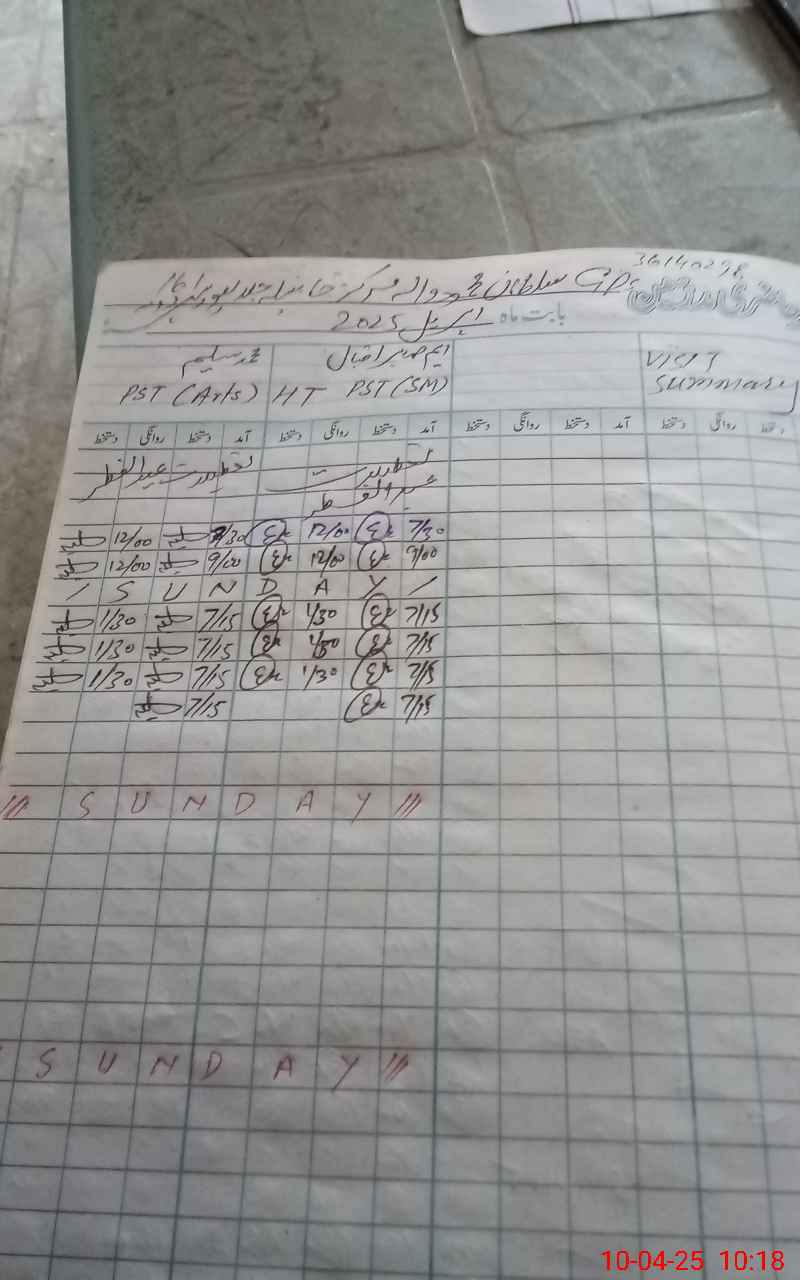 36140298
GPS سلطان محمود والہ مرکز
بابت ماہ اپریل 2025
ایم صابر اقبال محمد سلیم
VISIT
HT PST (SM) PST (Arts)
Summary
آمد دستخط روانگی دستخط آمد دستخط روانگی دستخط آمد دستخط روانگی دستخط دستخط روانگی دستخط
تعطیلات تعطیلات عید الفطر
عید الفطر
12/00 7/30 12/00 7/30
12/00 9/00 12/00 9/00
/ S U N D A Y /
1/30 7/15 1/30 7/15
1/30 7/15 1/30 7/15
1/30 7/15 1/30 7/15
7/15 7/15
/// S U N D A Y ///
S U N D A Y ///
10-04-25 10:18